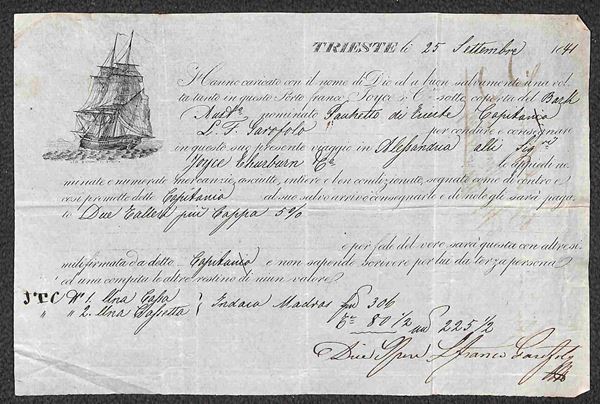 TRIESTE li 25 Settembre 1841
Hanno caricato con il nome di Dio ed a buon salvamento una vol-
ta tanto in questo Porto franco Joyce & C° sotto coperta del Bark
Austo nominato de Capitanio
L. F. Garofolo per condurre e consegnare
in questo suo presente viaggio in Alessandria alli Sigri
Joyce Thurburn Ca le quiedi no-
minate e numerate Mercanzie, asciutte, intiere e ben condizionate, segnate come di contro e
cosi promette detto Capitanio al suo salvo arrivo consegnarle e di nole gli sarà paga-
to Due Talleri più Cappa 5%
e per fede del vero sarà questa con altre si-
mili firmata da detto Capitanio e non sapendo scrivere per lui da terza persona
ed una compita le altre restino di niun valore
JTC No 1. Una Cassa } Indaco Madras 306
" " 2. Una Cassetta 80 1/2 225 1/2
Dice Franco Garofolo